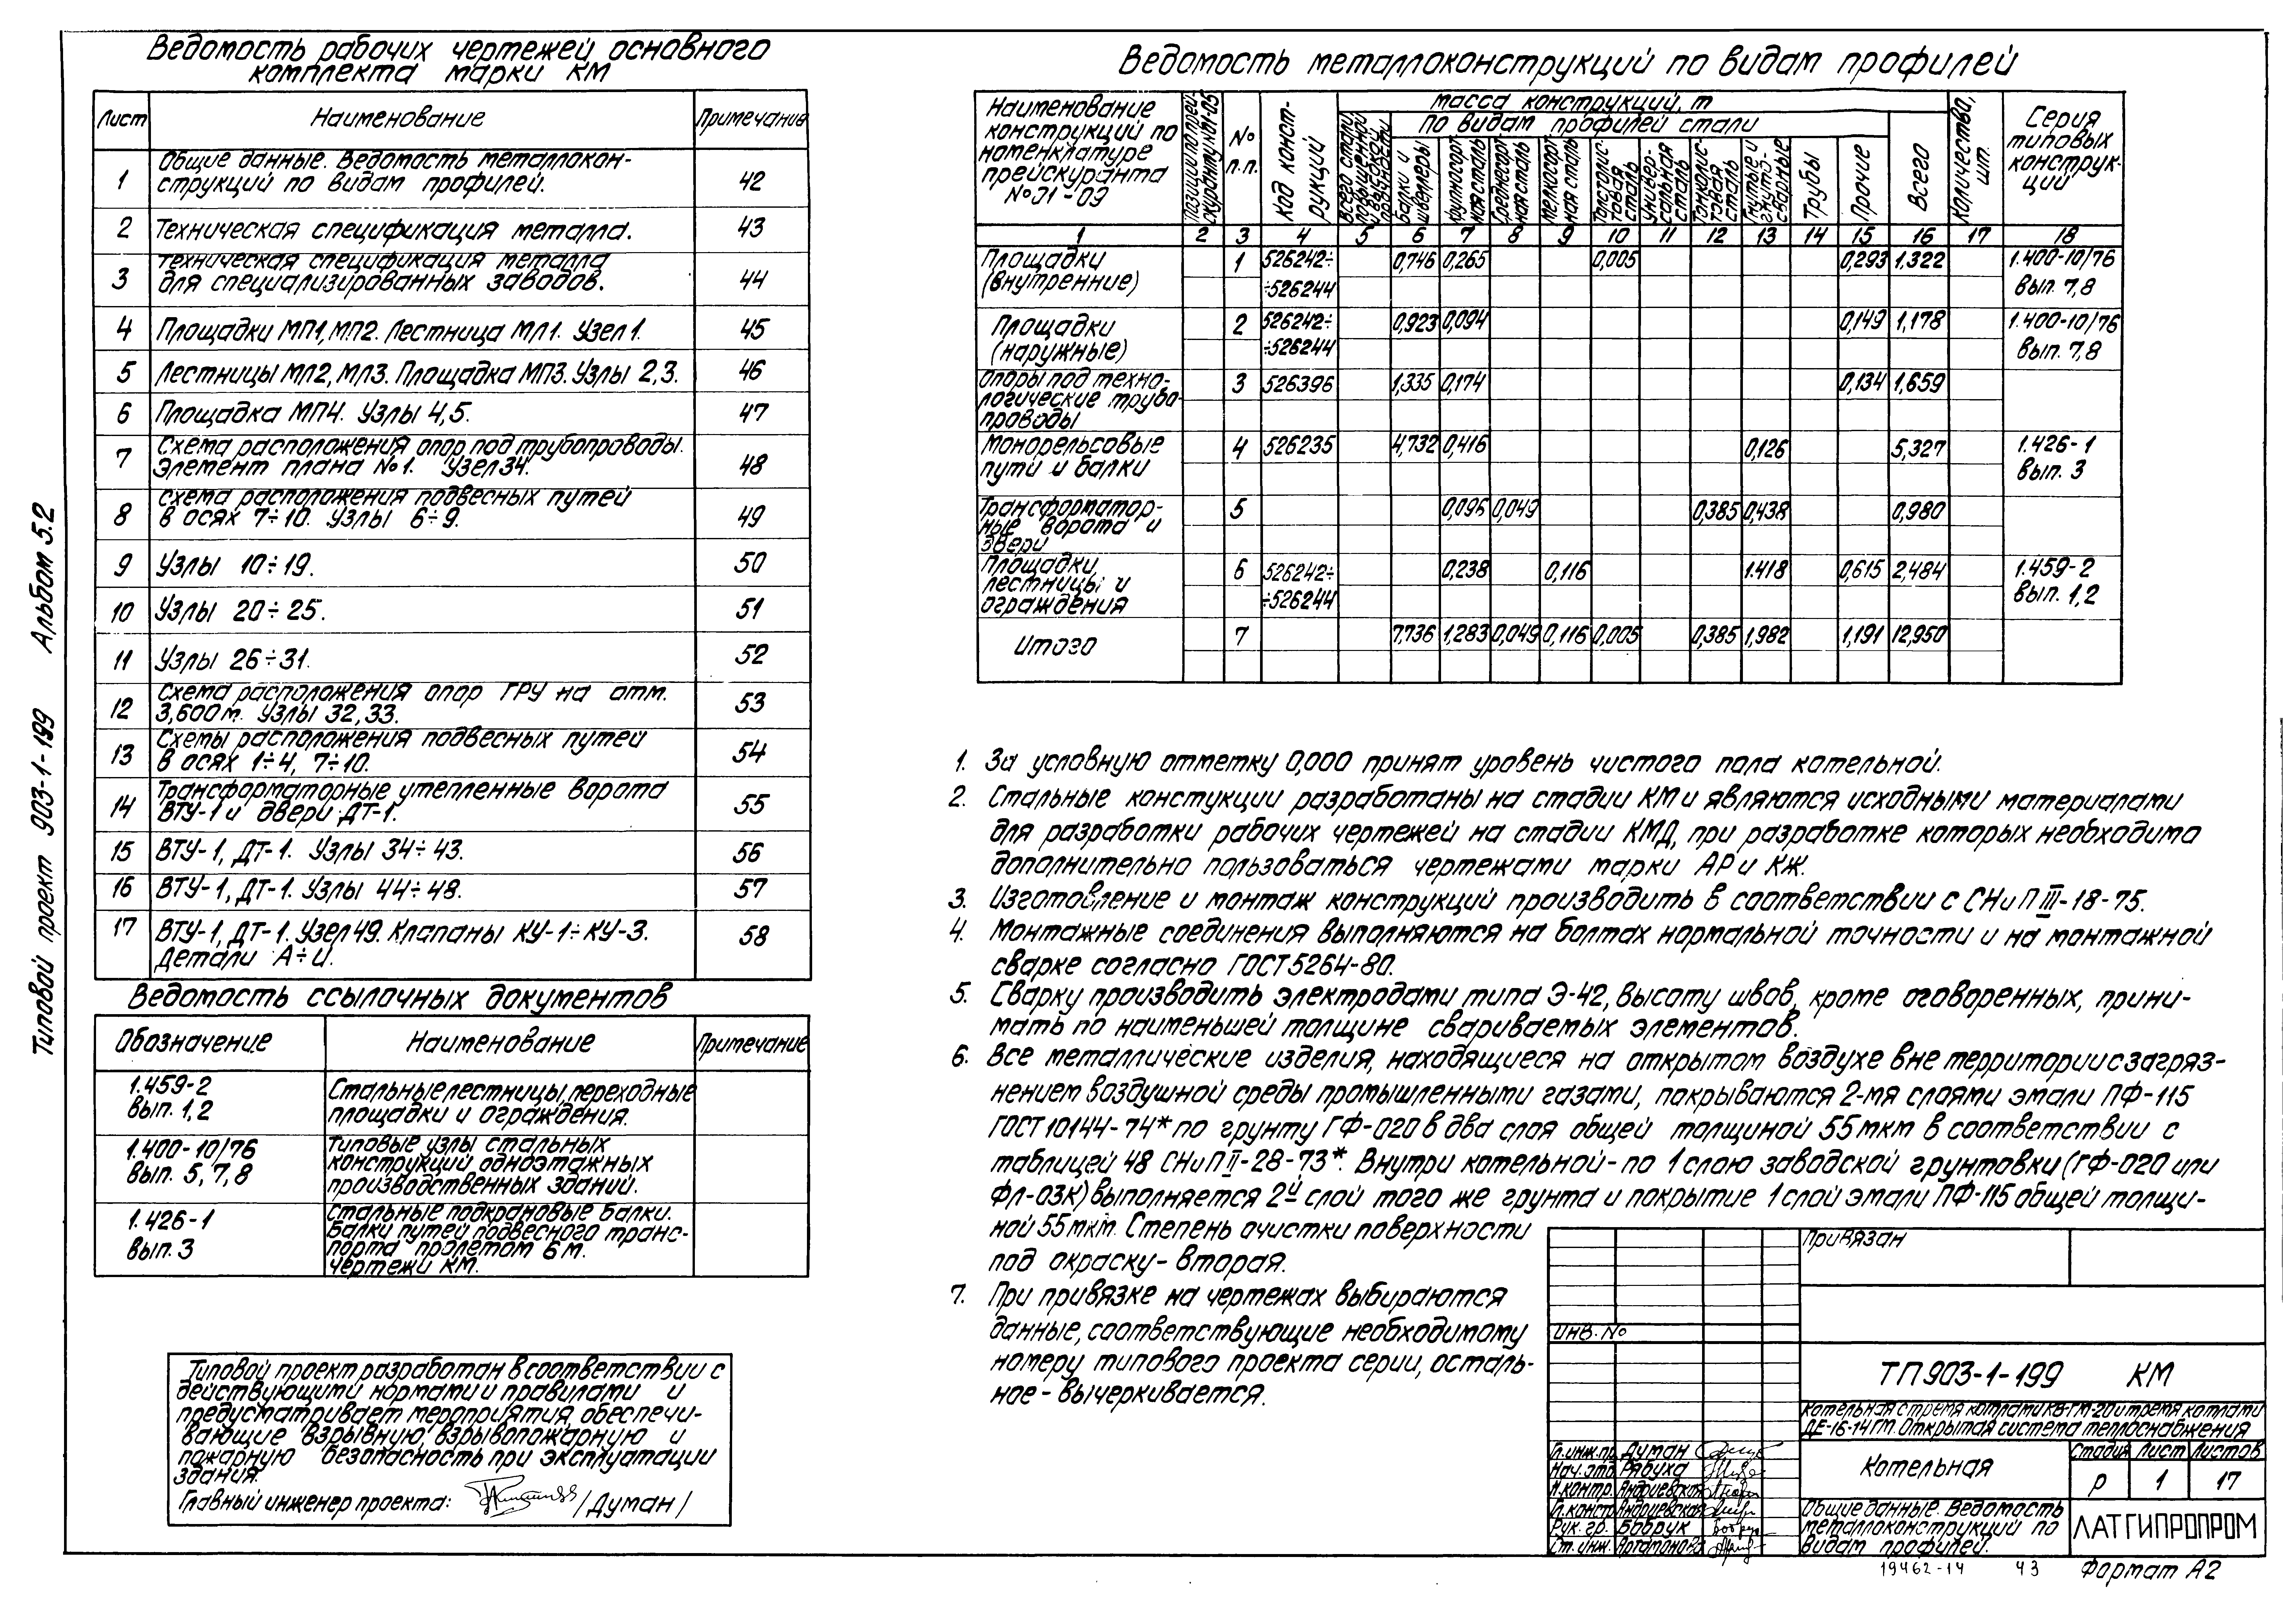 Ведомость рабочих чертежей основного
комплекта марки КМ
Лист Наименование Примечание
1 Общие данные. Ведомость металлокон-
струкций по видам профилей. 42
2 Техническая спецификация металла. 43
3 Техническая спецификация металла
для специализированных заводов. 44
4 Площадки МП1, МП2. Лестница МЛ1. Узел 1. 45
5 Лестницы МЛ2, МЛ3. Площадка МП3. Узлы 2,3. 46
6 Площадка МП4. Узлы 4,5. 47
7 Схема расположения опор под трубопроводы.
Элемент плана №1. Узел 34. 48
8 Схема расположения подвесных путей
в осях 7÷10. Узлы 6÷9. 49
9 Узлы 10÷19. 50
10 Узлы 20÷25. 51
11 Узлы 26÷31. 52
12 Схема расположения опор ГРУ на отм.
3,600м. Узлы 32,33. 53
13 Схемы расположения подвесных путей
в осях 1÷4, 7÷10. 54
14 Трансформаторные утепленные ворота
ВТУ-1 и двери ДТ-1. 55
15 ВТУ-1, ДТ-1. Узлы 34÷43. 56
16 ВТУ-1, ДТ-1. Узлы 44÷48. 57
17 ВТУ-1, ДТ-1. Узел 49. Клапаны КУ-1÷КУ-3.
Детали А÷И. 58
Ведомость ссылочных документов
Обозначение Наименование Примечание
1.459-2
вып. 1,2
Стальные лестницы, переходные
площадки и ограждения.
1.400-10/76
вып. 5,7,8
Типовые узлы стальных
конструкций одноэтажных
производственных зданий.
1.426-1
вып. 3
Стальные подкрановые балки.
Балки путей подвесного транс-
порта пролетом 6 м.
Чертежи КМ.
Типовой проект разработан в соответствии с
действующими нормами и правилами и
предусматривает мероприятия, обеспечи-
вающие взрывную, взрывопожарную и
пожарную безопасность при эксплуатации
здания.
Главный инженер проекта: /Думан/
Типовой проект 903-1-199 Альбом 5.2
Ведомость металлоконструкций по видам профилей
Наименование
конструкций по
номенклатуре
прейскуранта
№01-09
№
п.п.
Код конст-
рукций
Масса конструкций, т
По видам профилей стали
Балки и
швеллеры
Крупносорт-
ная сталь
Среднесорт-
ная сталь
Мелкосорт-
ная сталь
Толстолис-
товая
сталь
Универ-
сальная
сталь
Тонколис-
товая
сталь
Гнутые и
гнуто-
сварные
Трубы
Прочие
Всего
Количество,
шт.
Серия
типовых
конструк-
ций
1 2 3 4 5 6 7 8 9 10 11 12 13 14 15 16 17 18
Площадки
(внутренние) 1 526242÷
÷526244 0,746 0,265 0,005 0,293 1,322 1.400-10/76
вып. 7,8
Площадки
(наружные) 2 526242÷
÷526244 0,923 0,094 0,149 1,178 1.400-10/76
вып. 7,8
Опоры под техно-
логические трубо-
проводы 3 526396 1,335 0,174 0,134 1,659
Монорельсовые
пути и балки 4 526235 4,732 0,416 0,126 5,327 1.426-1
вып. 3
Трансформатор-
ные ворота и
двери 5 0,096 0,049 0,385 0,438 0,980
Площадки,
лестницы и
ограждения 6 526242÷
÷526244 0,238 0,116 1.418 0,615 2,484 1.459-2
вып. 1,2
Итого 7 7,736 1,283 0,049 0,116 0,005 0,385 1,982 1,191 12,950
1. За условную отметку 0,000 принят уровень чистого пола котельной.
2. Стальные констукции разработаны на стадии КМ и являются исходными материалами
для разработки рабочих чертежей на стадии КМД, при разработке которых необходимо
дополнительно пользоваться чертежами марки АР и КЖ.
3. Изготовление и монтаж конструкций производить в соответствии с СНиП III-18-75.
4. Монтажные соединения выполняются на болтах нормальной точности и на монтажной
сварке согласно ГОСТ 5264-80.
5. Сварку производить электродами типа Э-42, высоту швов, кроме оговоренных, прини-
мать по наименьшей толщине свариваемых элементов.
6. Все металлические изделия, находящиеся на открытом воздухе вне территории с загряз-
нением воздушной среды промышленными газами, покрываются 2-мя слоями эмали ПФ-115
ГОСТ 10144-74* по грунту ГФ-020 в два слоя общей толщиной 55 мкм в соответствии с
таблицей 48 СНиП II-28-73*. Внутри котельной - по 1 слою заводской грунтовки (ГФ-020 или
ФЛ-03К) выполняется 2й слой того же грунта и покрытие 1 слой эмали ПФ-115 общей толщи-
ной 55 мкм. Степень очистки поверхности
под окраску - вторая.
7. При привязке на чертежах выбираются
данные, соответствующие необходимому
номеру типового проекта серии, осталь-
ное - вычеркивается.
Привязан
Инв. №
ТП 903-1-199 КМ
Котельная с тремя котлами КВ-ГМ-20 и тремя котлами
ДЕ-16-14ГМ. Открытая система теплоснабжения
Гл. инж. пр. Думан
Нач. отд. Рябуха
Н. контр. Андриевская
Гл. констр. Андриевская
Рук. гр. Бобрук
Ст. инж. Артамонова
Котельная
Стадия Лист Листов
Р 1 17
Общие данные. Ведомость
металлоконструкций по
видам профилей.
ЛАТГИПРОПРОМ
19462-14 43 Формат А2